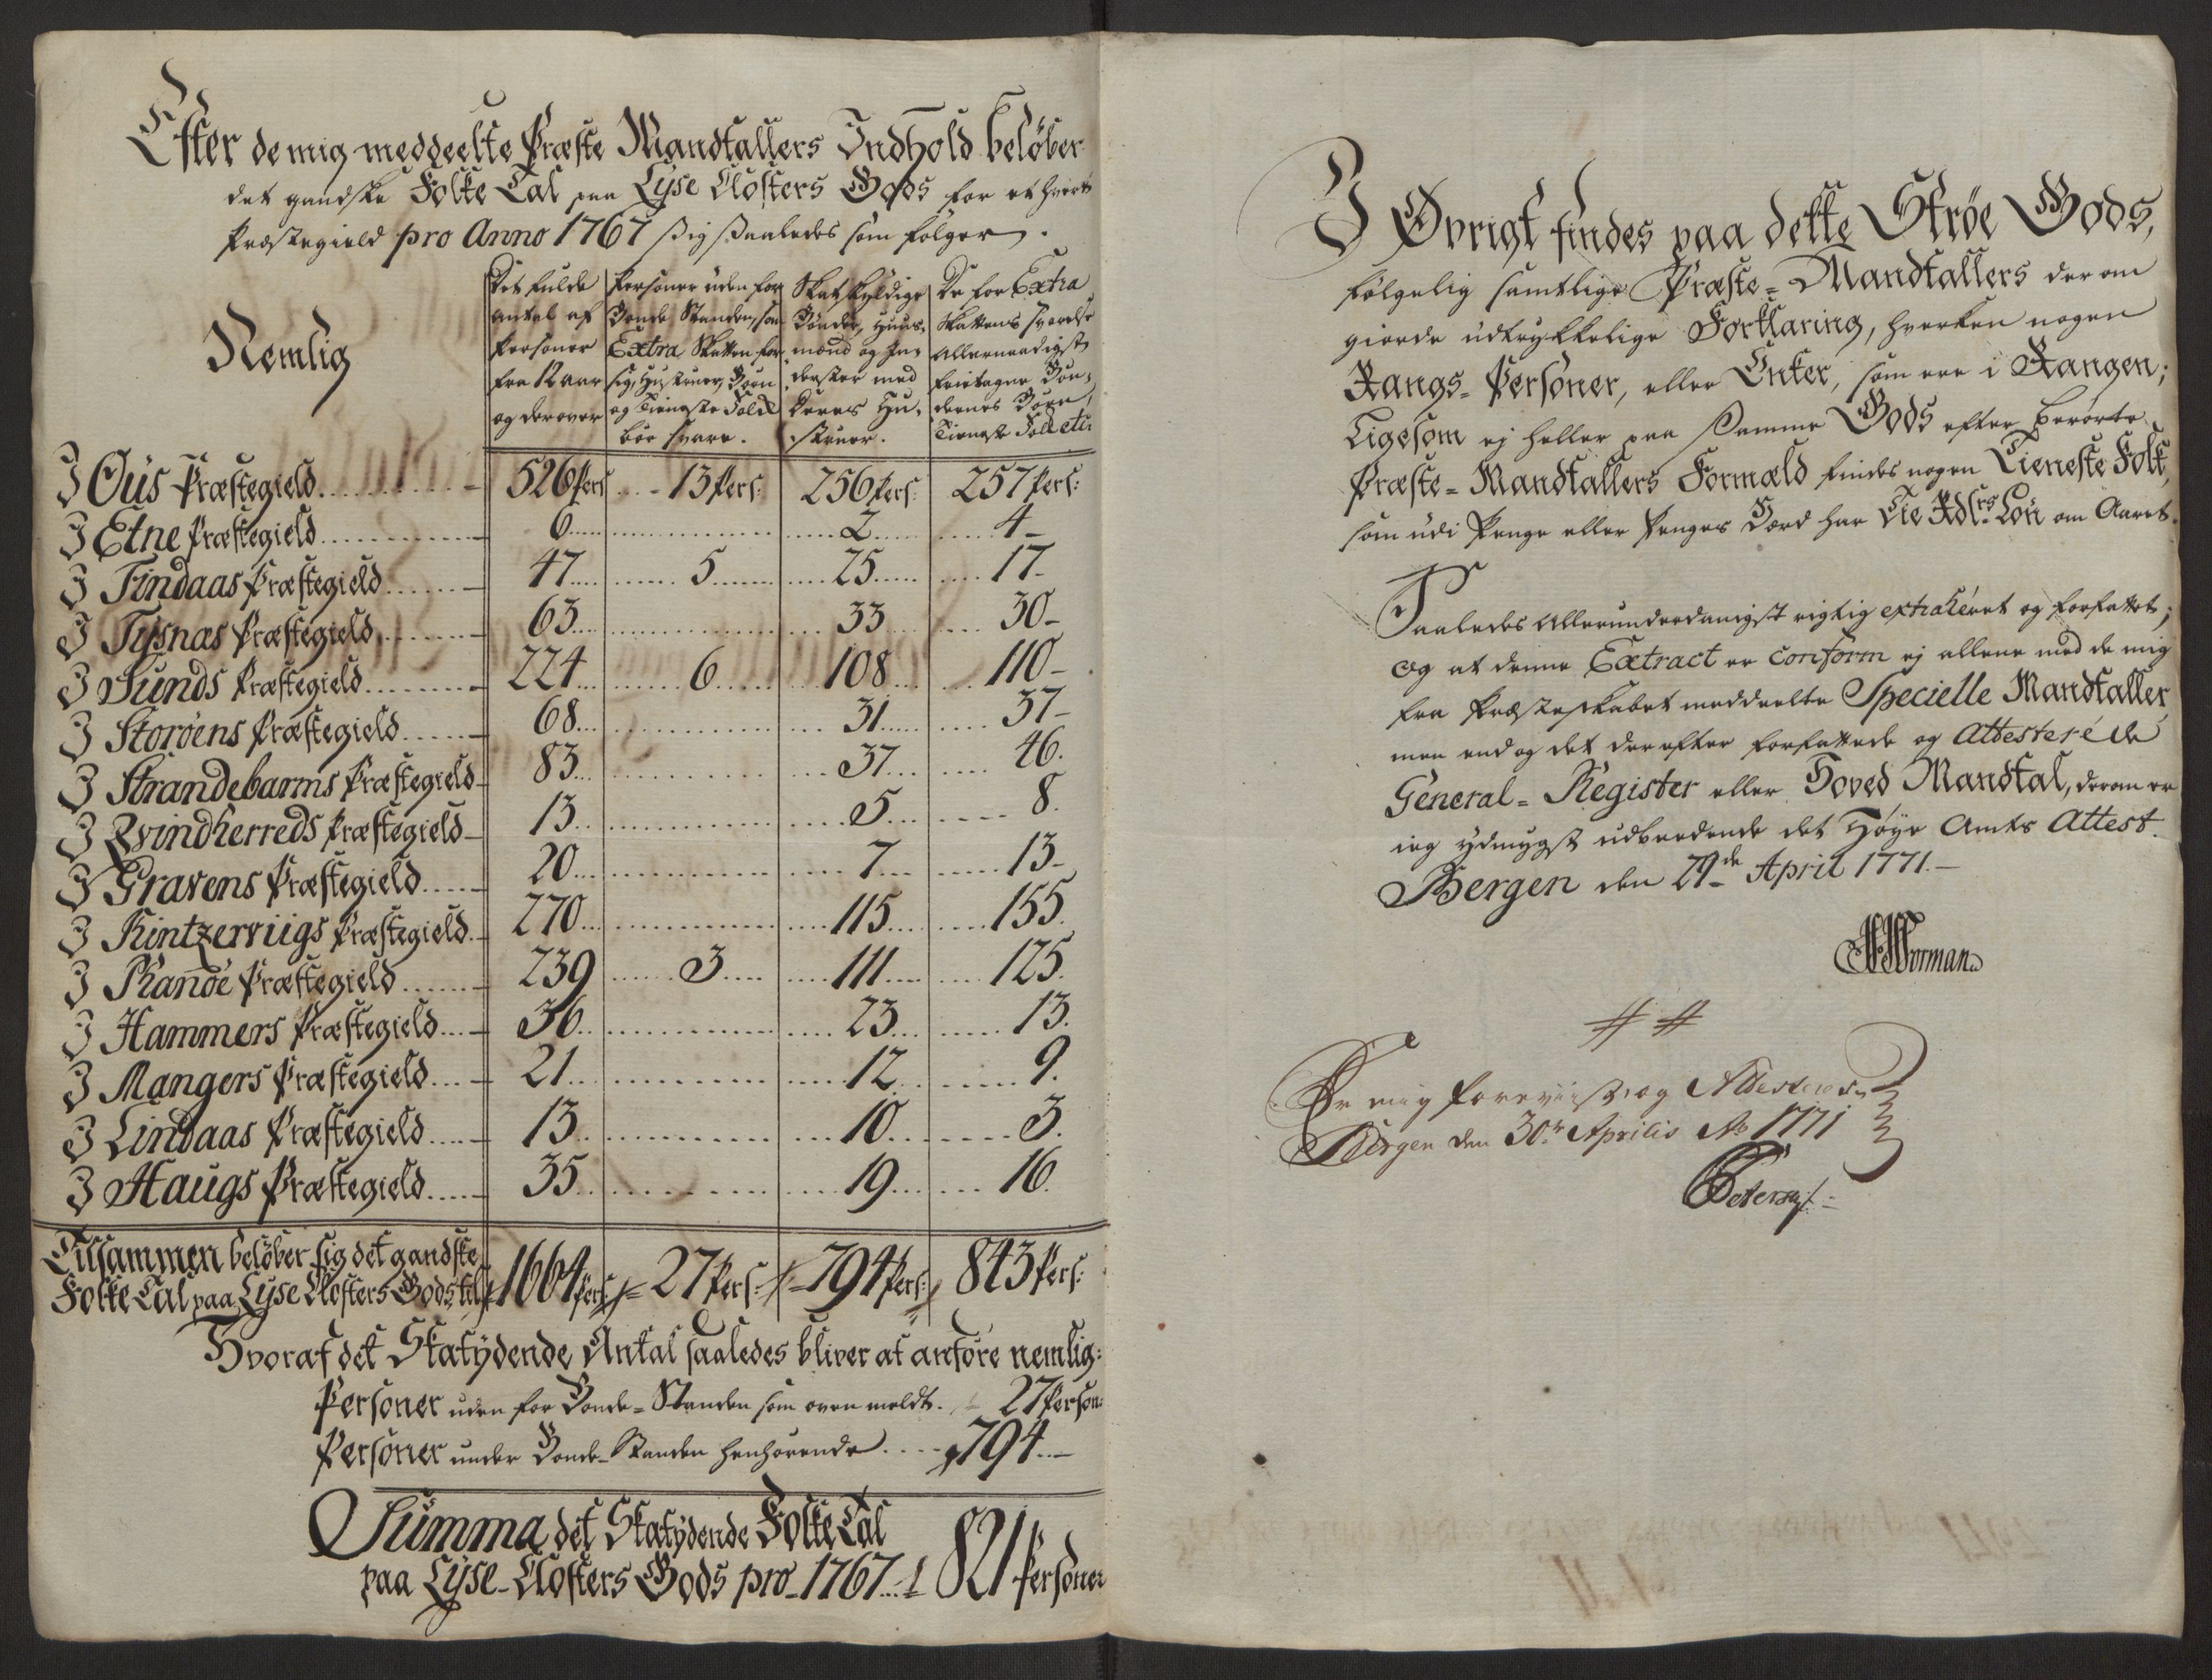 Efter de mig meddeelte Præste Mandtallers Indhold beløber
det gandske Folke Tal paa Lyse Closters Gods for et hvert
Præstegield pro Anno 1767 sig saaledes som følger.
Nemlig
Det fulde antal af Personer fra 12 aar og derover
Personer uden for Bonde Standen, som Extra Skatten for sig, Hustruer, Børn og Tieneste Folck bør svare.
Skatskyldige Bønder, Huus-mænd og In-derster med deres Hu-struer.
De for Extra Skattens svarelse allernaadigst frietagne Bøn-dernes Børn, Tieneste Folck etc:
I Ous Præstegield 526 Pers 13 Pers: 256 Pers: 257 Pers:
I Etne Præstegield 6 2 4
I Findaas Præstegield 47 5 25 17
I Tysnæs Præstegield 63 33 30
I Sunds Præstegield 224 6 108 110
I Storøens Præstegield 68 31 37
I Strandebarms Præstegield 83 37 46.
I Qvindherreds Præstegield 13 5 8.
I Gravens Præstegield 20 7 13
I Kintzerviigs Præstegield 270 115 155.
I Ranøe Præstegield 239 3 111 125.
I Hammers Præstegield 36 23 13.
I Mangers Præstegield 21 12 9.
I Lindaas Præstegield 13 10 3.
I Haugs Præstegield 35 19 16.
Tilsammen beløber sig det gandske
Folke Tal paa Lyse Closters Gods til 1664 Pers: 27 Pers: 794 Pers: 843 Pers:
Hvoraf det Skatydende Antal saaledes bliver at anføre nemlig:
Personer uden for Bonde-Standen som oven meldt. 27 Person:
Personer under Bonde-Standen henhørende 794
Summa det Skatydende Folke Tal
paa Lyse-Closters Gods pro 1767 821 Personer
I Øvrigt findes paa dette Strøe Gods,
følgelig samtlige Præste-Mandtallers derom
giorde udtrykkelige Forklaring, hverken nogen
Rangs-Personer, eller Enker, som ere i Rangen;
Ligesom ej heller paa samme Gods efter berørte
Præste-Mandtallers Formæld findes nogen Tieneste Folk,
som udi Penge eller Penges Værd har Tie Rdlrs Løn om Aaret.
Saaledes allerunderdanigst rigtig extraheret og forfattet;
og at denne Extract er conform ej allene med de mig
fra Præsteskabet meddeelte Specielle Mandtaller
men endog det derefter forfattede og Attesterede
General-Register eller Hoved Mandtal, derom er
ieg ydmygst udbeedende det Høye Amts Attest.
Bergen den 29de April 1771.
Worman
Er mig foreviist og Attesteres
Bergen den 30te Aprilis Ao 1771